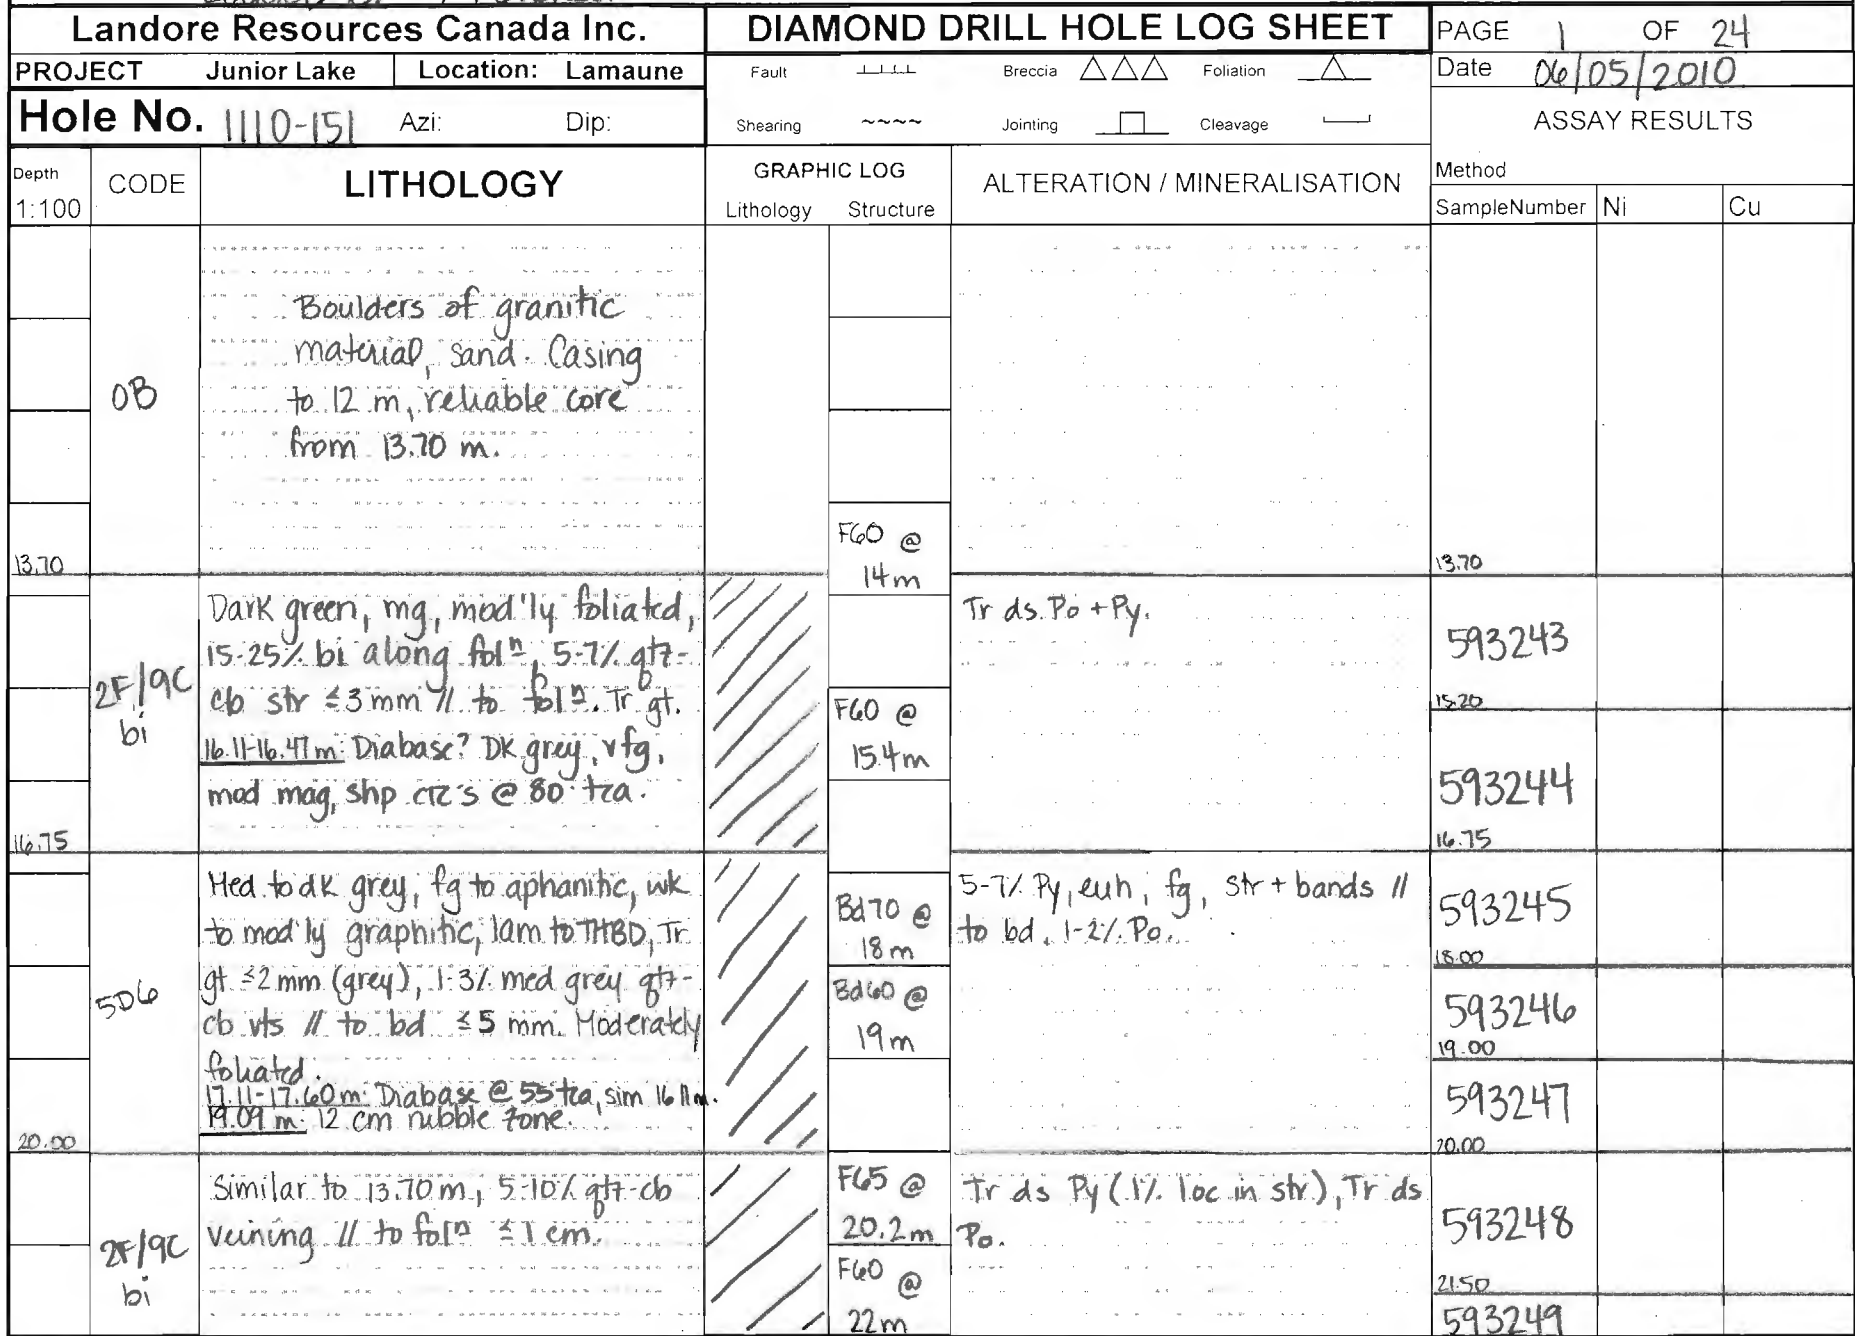 Landore Resources Canada Inc.
DIAMOND DRILL HOLE LOG SHEET
PAGE 1 OF 24
PROJECT Junior Lake Location: Lamaune
Fault Breccia Foliation
Date 06/05/2010
Hole No. 1110-151 Azi: Dip:
Shearing Jointing Cleavage
ASSAY RESULTS
Depth
1:100
CODE
LITHOLOGY
GRAPHIC LOG
Lithology Structure
ALTERATION / MINERALISATION
Method
SampleNumber Ni Cu
OB
Boulders of granitic
material, sand. Casing
to 12 m, reliable core
from 13.70 m.
F60 @
14m
13.70
13.70
2F/9C
bi
Dark green, mg, mod'ly foliated,
15-25% bi along folⁿ, 5-7% qtz-
cb str ≤3mm // to folⁿ. Tr gt.
16.11-16.47m: Diabase? DK grey, vfg,
mod mag, shp ctc's @ 80 tca.
F60 @
15.4m
Tr ds. Po + Py.
593243
15.20
593244
16.75
16.75
5D6
Med to dk grey, fg to aphanitic, wk
to mod'ly graphitic, lam to THBD, Tr
gt ≤2mm (grey), 1-3% med grey qtz-
cb vts // to bd ≤5 mm. Moderately
foliated.
17.11-17.60m: Diabase @ 55 tca, sim 16.11m.
19.09 m: 12 cm rubble zone.
Bd70 @
18m
Bd60 @
19m
5-7% Py, euh, fg, str + bands //
to bd, 1-2% Po.
593245
18.00
593246
19.00
593247
20.00
20.00
2F/9C
bi
Similar to 13.70m, 5-10% qtz-cb
veining // to folⁿ ≤1cm.
F65 @
20.2m
F60 @
22m
Tr ds Py (1% loc in str), Tr ds
Po.
593248
21.50
593249